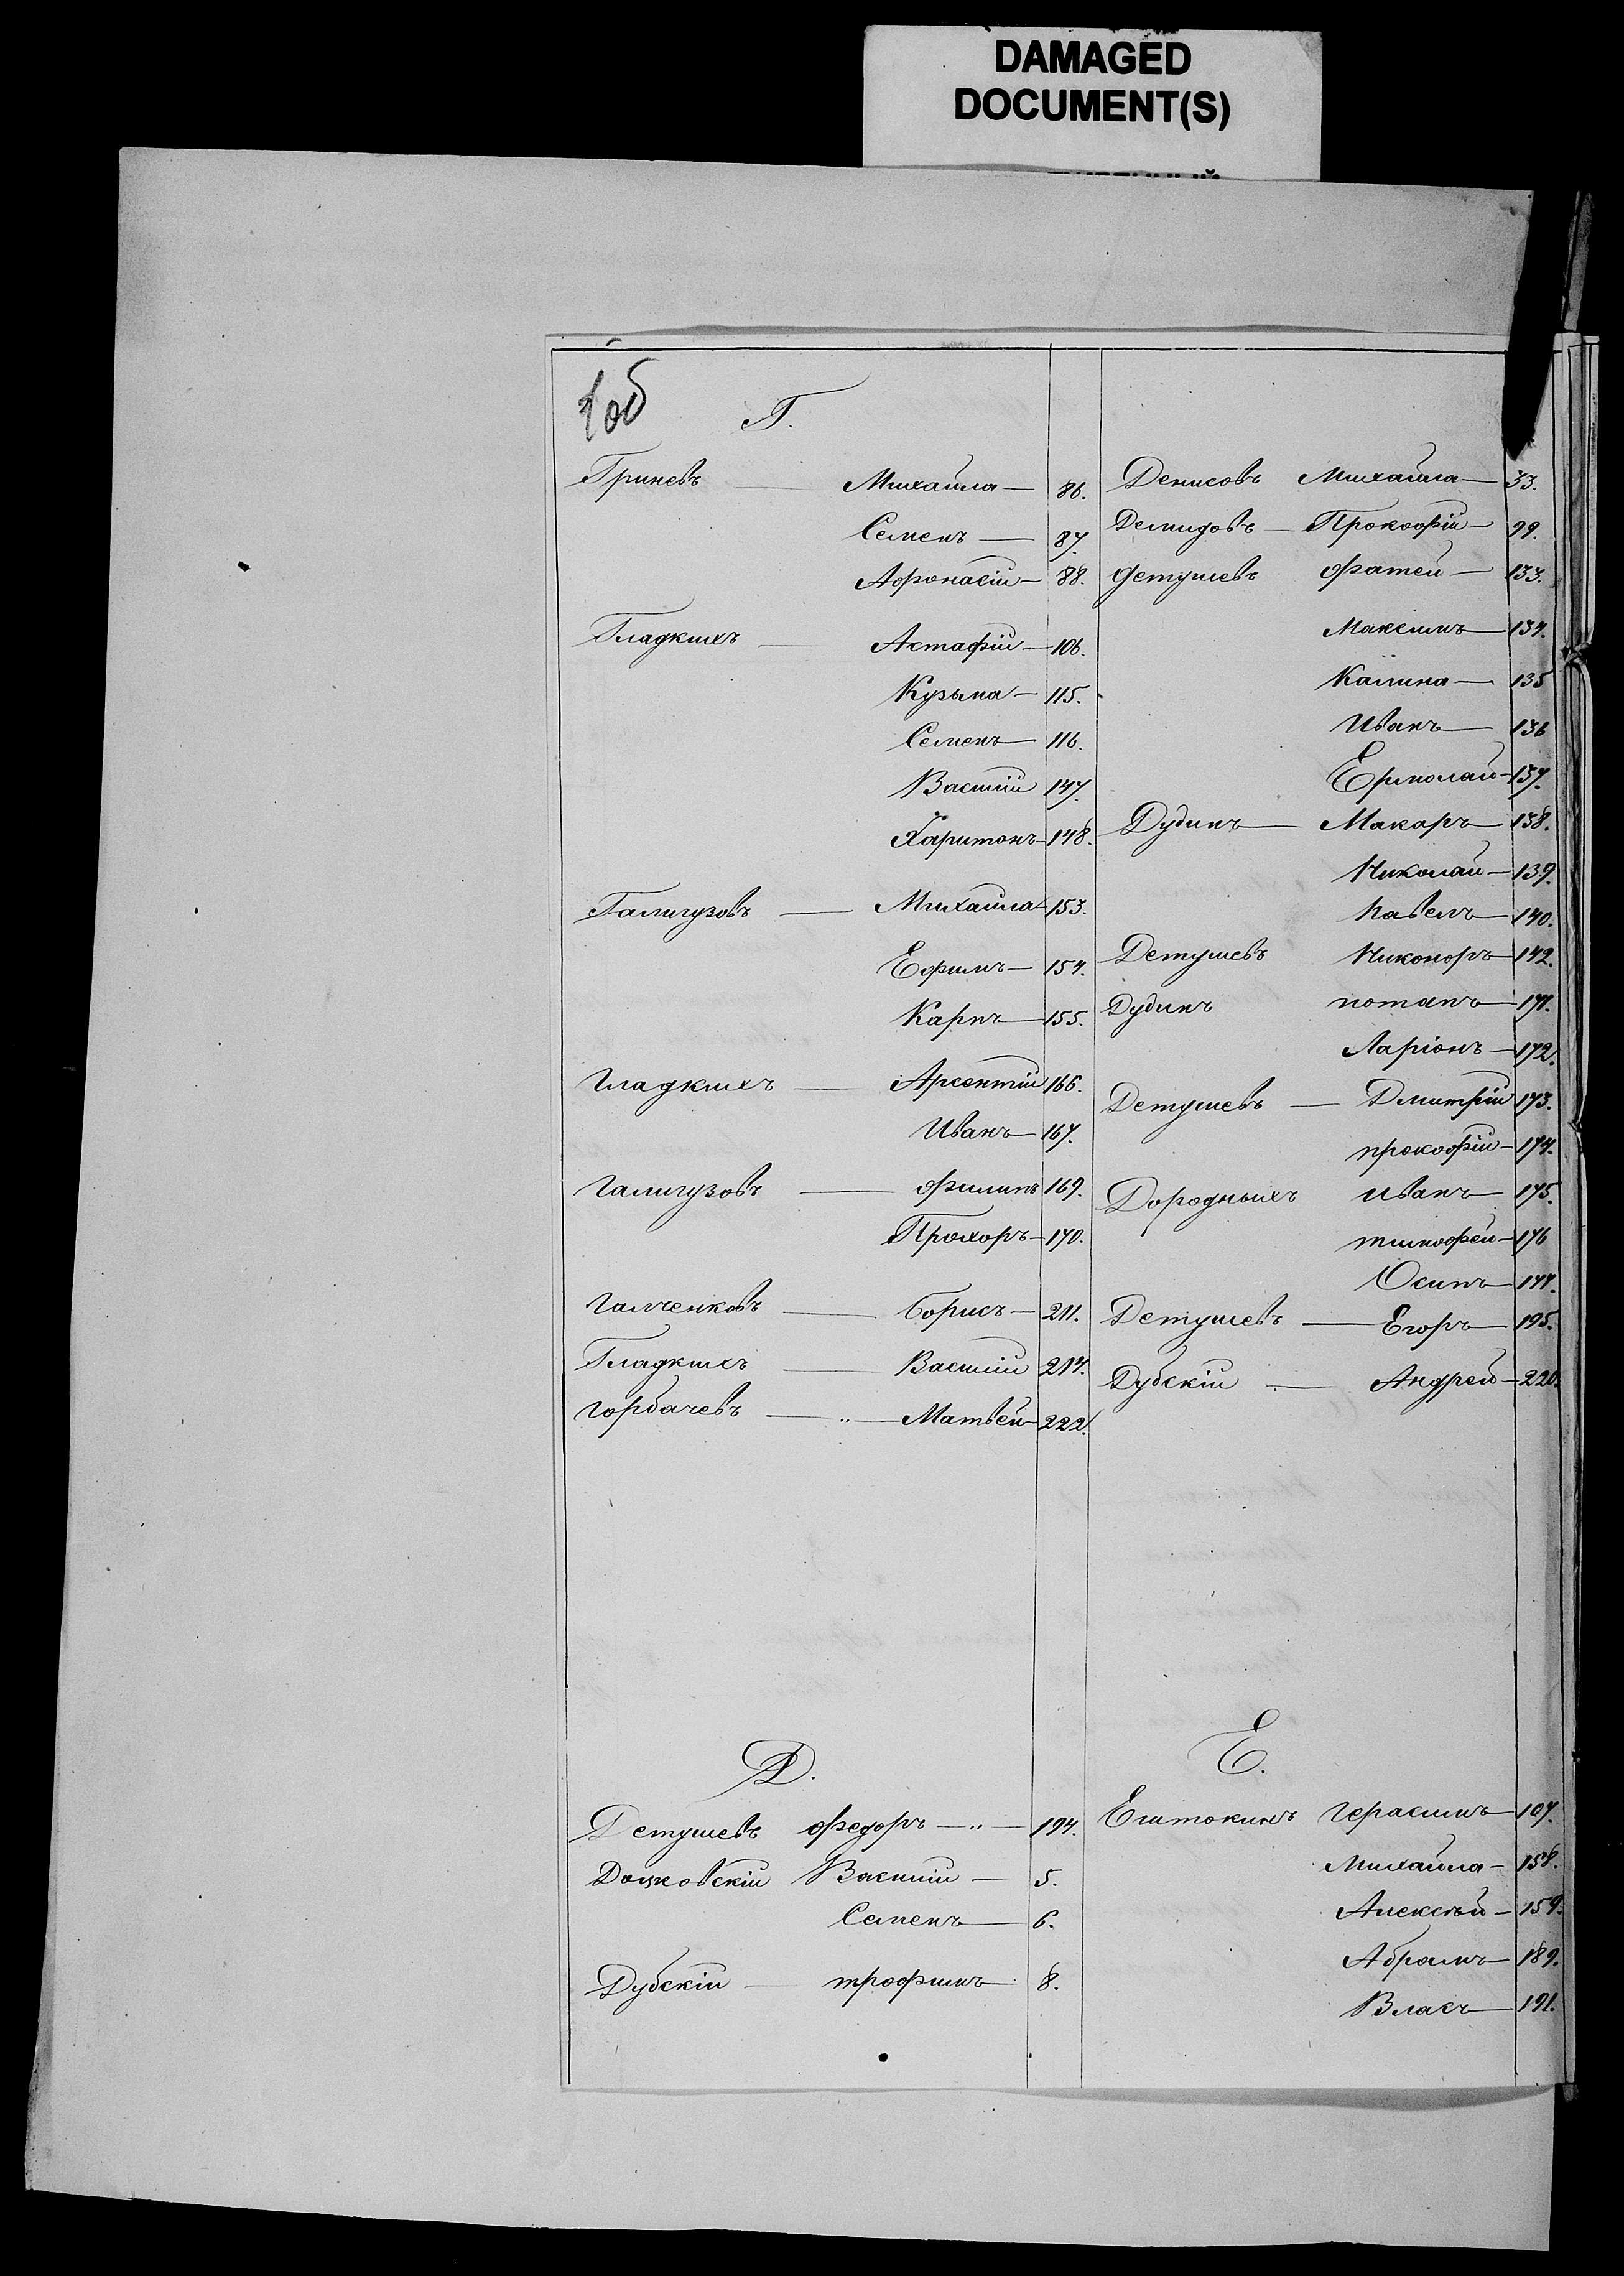 DAMAGED
DOCUMENT(S)
1об
Г.
Гриневъ — Михайла — 86.
Семенъ — 87.
Афонасiй — 88.
Гладкихъ — Астафiй — 106.
Кузьма — 115.
Семенъ — 116.
Василiй 147.
Харитонъ — 148.
Галигузовъ — Михайла — 153.
Ефимъ — 154.
Карпъ — 155.
Гладкихъ — Арсентiй 166.
Иванъ — 167.
Галигузовъ — Филипъ 169.
Прохоръ — 170.
Галченковъ — Борисъ — 211.
Гладкихъ — Василiй 214.
Горбачевъ — „ — Матвей — 222.
Д.
Детушевъ Федоръ — „ — 194.
Василiй — 5.
Семенъ — 6.
Дубскiй — трофимъ 8.
Денисовъ Михайла — 33.
Демидовъ — Прокофiй — 99.
Детушевъ Фатей — 133.
Максимъ — 134.
Калина — 135
Иванъ — 136
Ермолай — 137.
Дудинъ — Макаръ — 138.
Николай — 139.
Павелъ — 140.
Детушевъ Никоноръ — 142.
Дудинъ потапъ — 171.
Ларiонъ — 172.
Детушевъ — Дмитрiй 173.
прокофiй — 174.
Дородныхъ Иванъ — 175.
тимофей — 176
Осипъ — 177.
Детушевъ — Егоръ — 195.
Дубскiй — Андрей — 220.
Е.
Ештокинъ Герасимъ — 107.
Михайла — 158.
Алексѣй — 159.
Абрамъ — 189.
Власъ — 191.